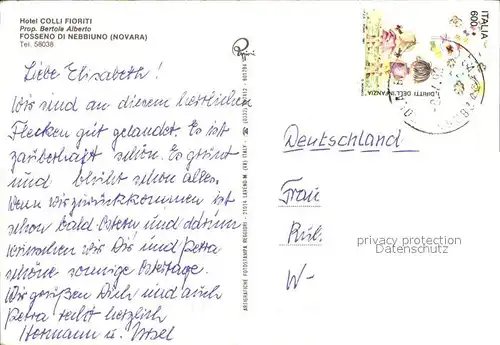 Hotel COLLI FIORITI
Prop. Bertola Alberto
FOSSENO DI NEBBIUNO (NOVARA)
Tel. 58038
Liebe Elisabeth!
Wir sind an diesem herrlichen
Flecken gut gelandet. Es ist
zauberhaft schön. Es grünt
und blüht schon alles.
Wenn wir zurückkommen ist
schon bald Ostern und darum
wünschen wir Dir und Petra
schöne sonnige Ostertage.
Wir grüßen Dich und auch
Petra recht herzlich
Hermann u. Ursel
ITALIA
600
I DIRITTI DELL'INFANZIA
Deutschland
Frau
W-
privacy protection
Datenschutz